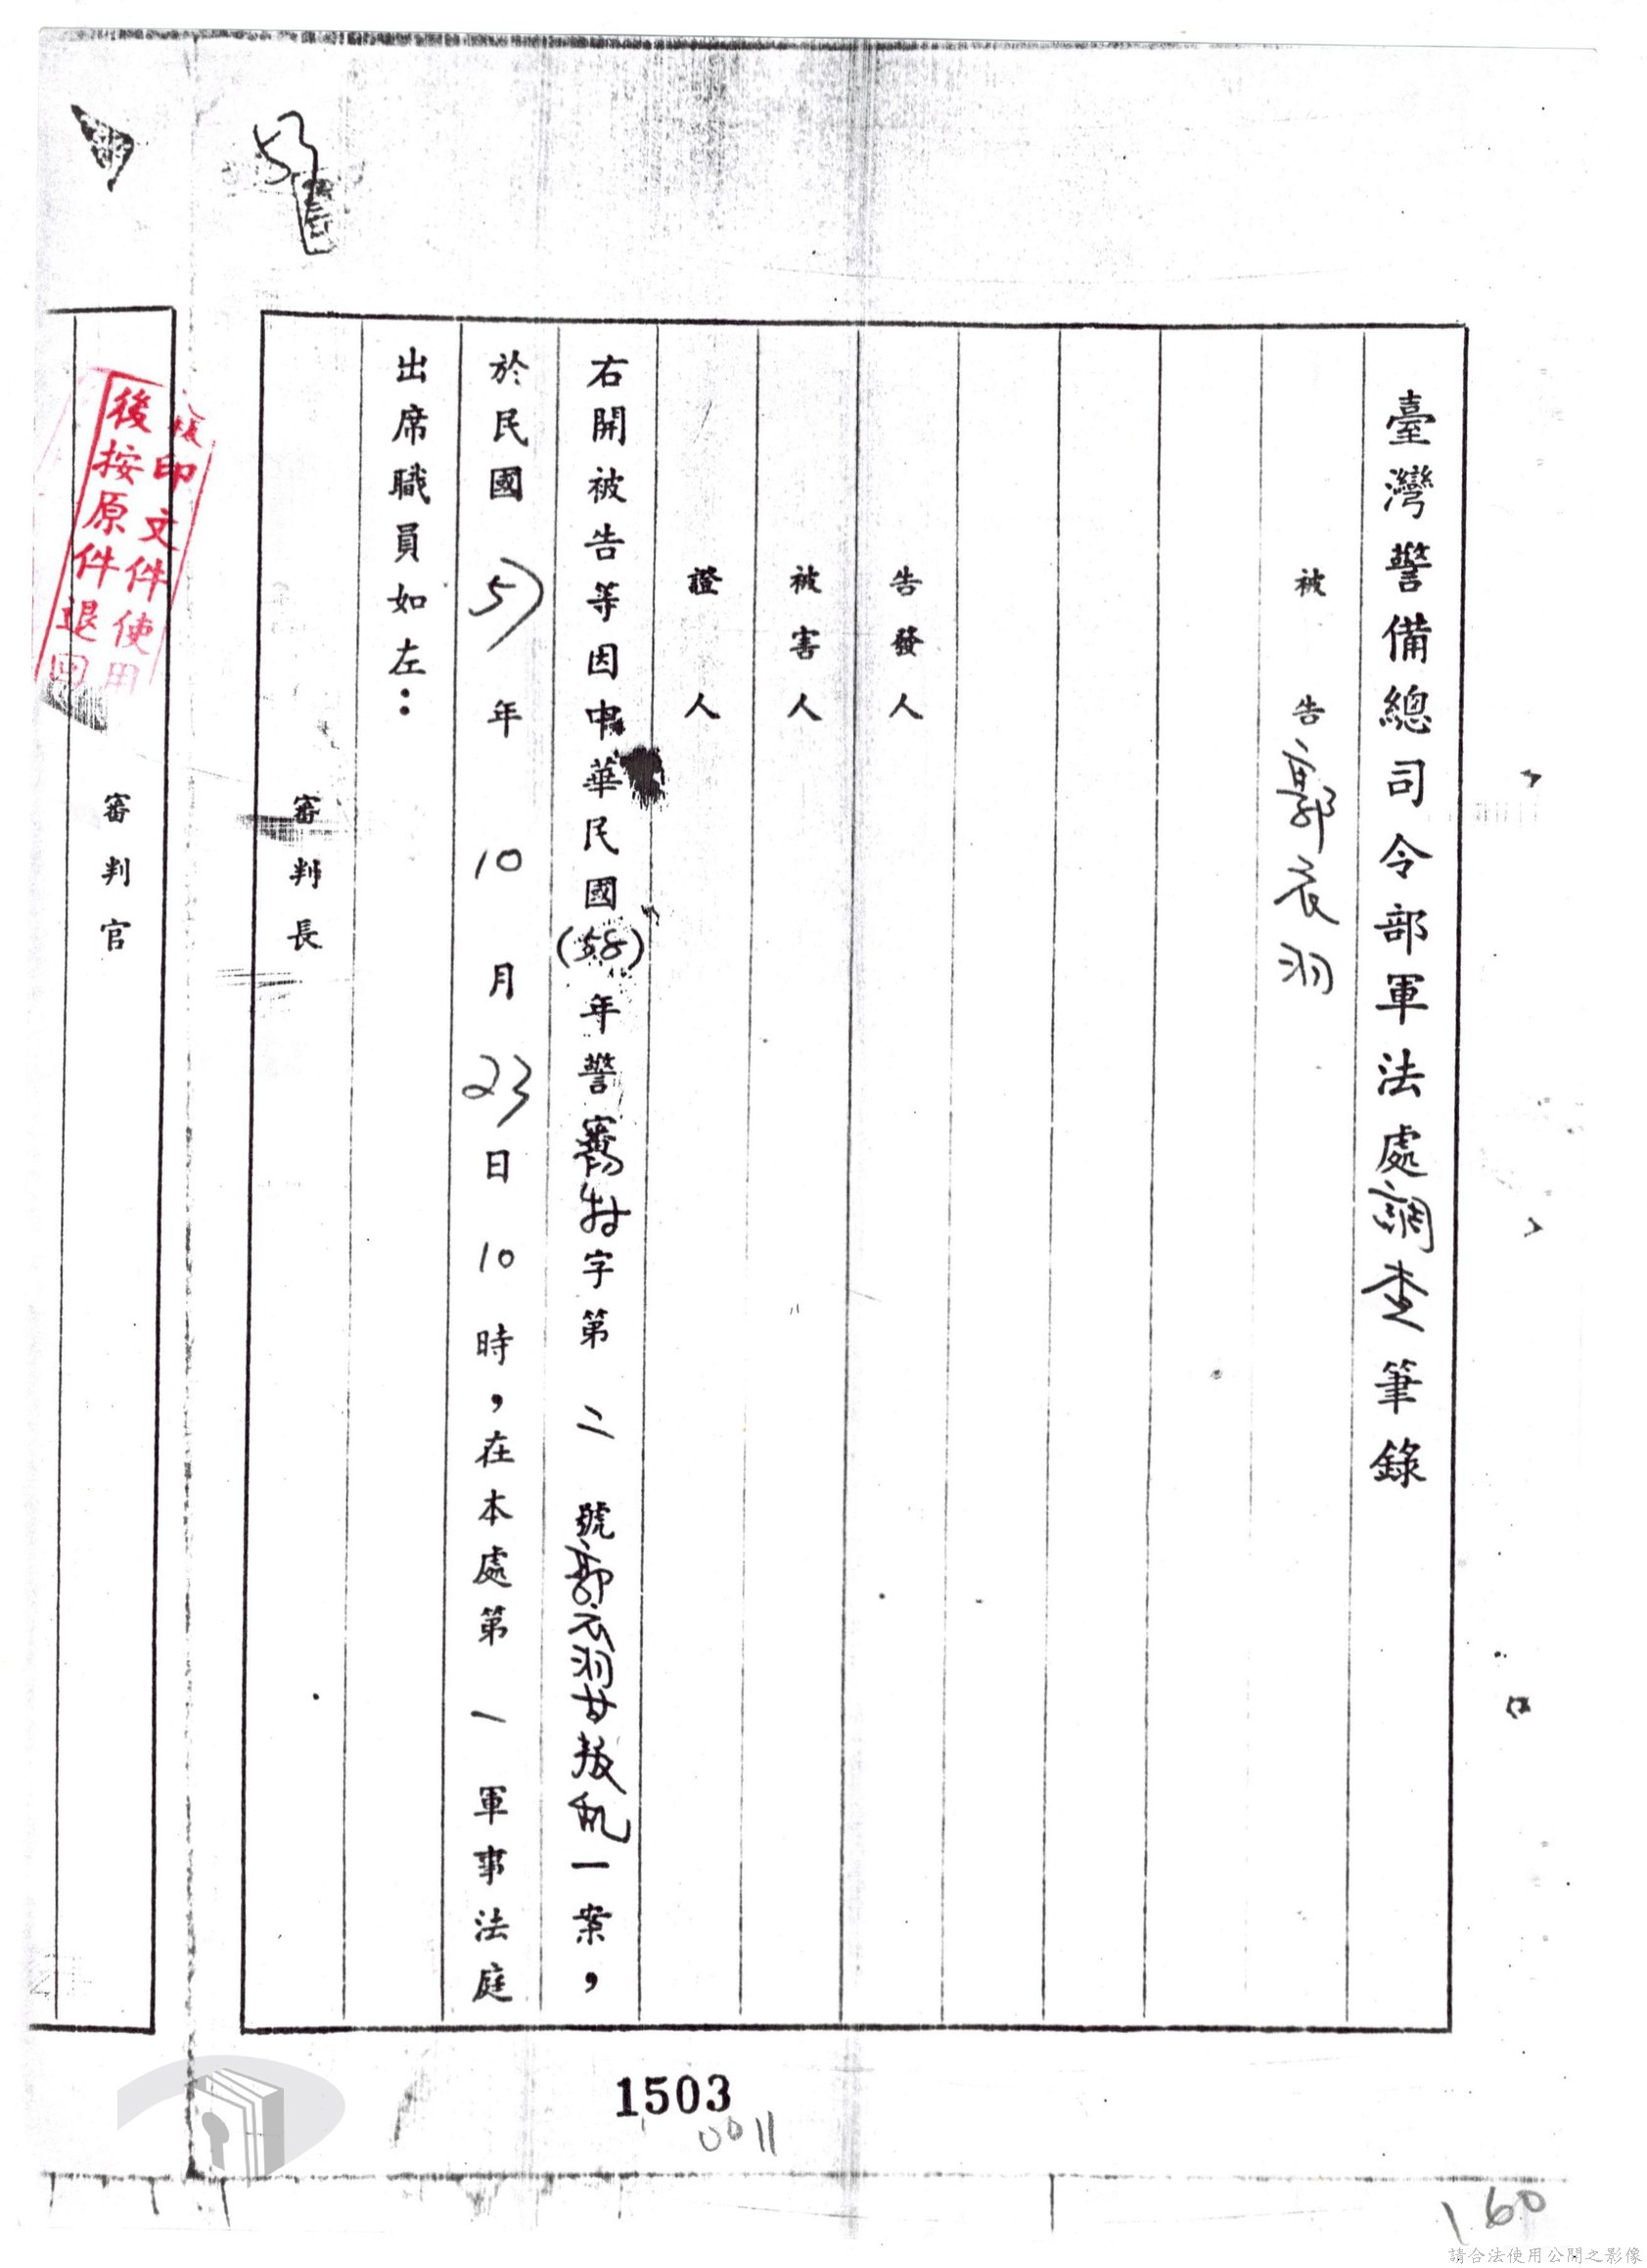 臺灣警備總司令部軍法處調查筆錄
被告郭衣羽
告發人
被害人
證人
右開被告等因中華民國(58)年警審特字第二號郭衣羽廿叛乱一案，
於民國57年10月23日10時，在本處第一軍事法庭
出席職員如左：
審判長
審判官
印文件使用
後按原件退回
1503
0011
160
請合法使用公開之影像